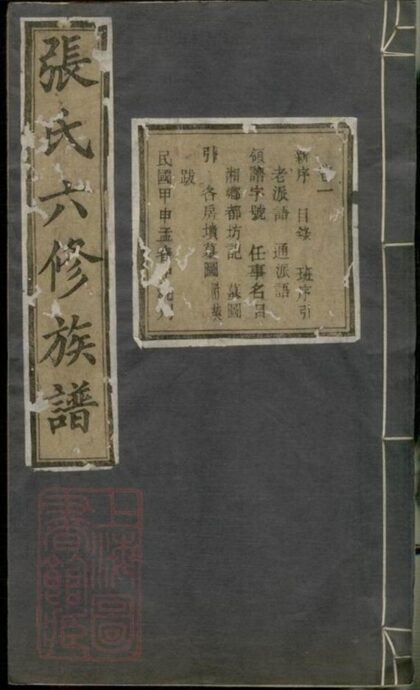 張氏六修族譜
一
新序 目錄 班序引
老派語 通派語
領譜字號 任事名目
湘鄉都坊記 墓圖
引 各房墳墓圖
跋
民國甲申孟
上海圖書館藏